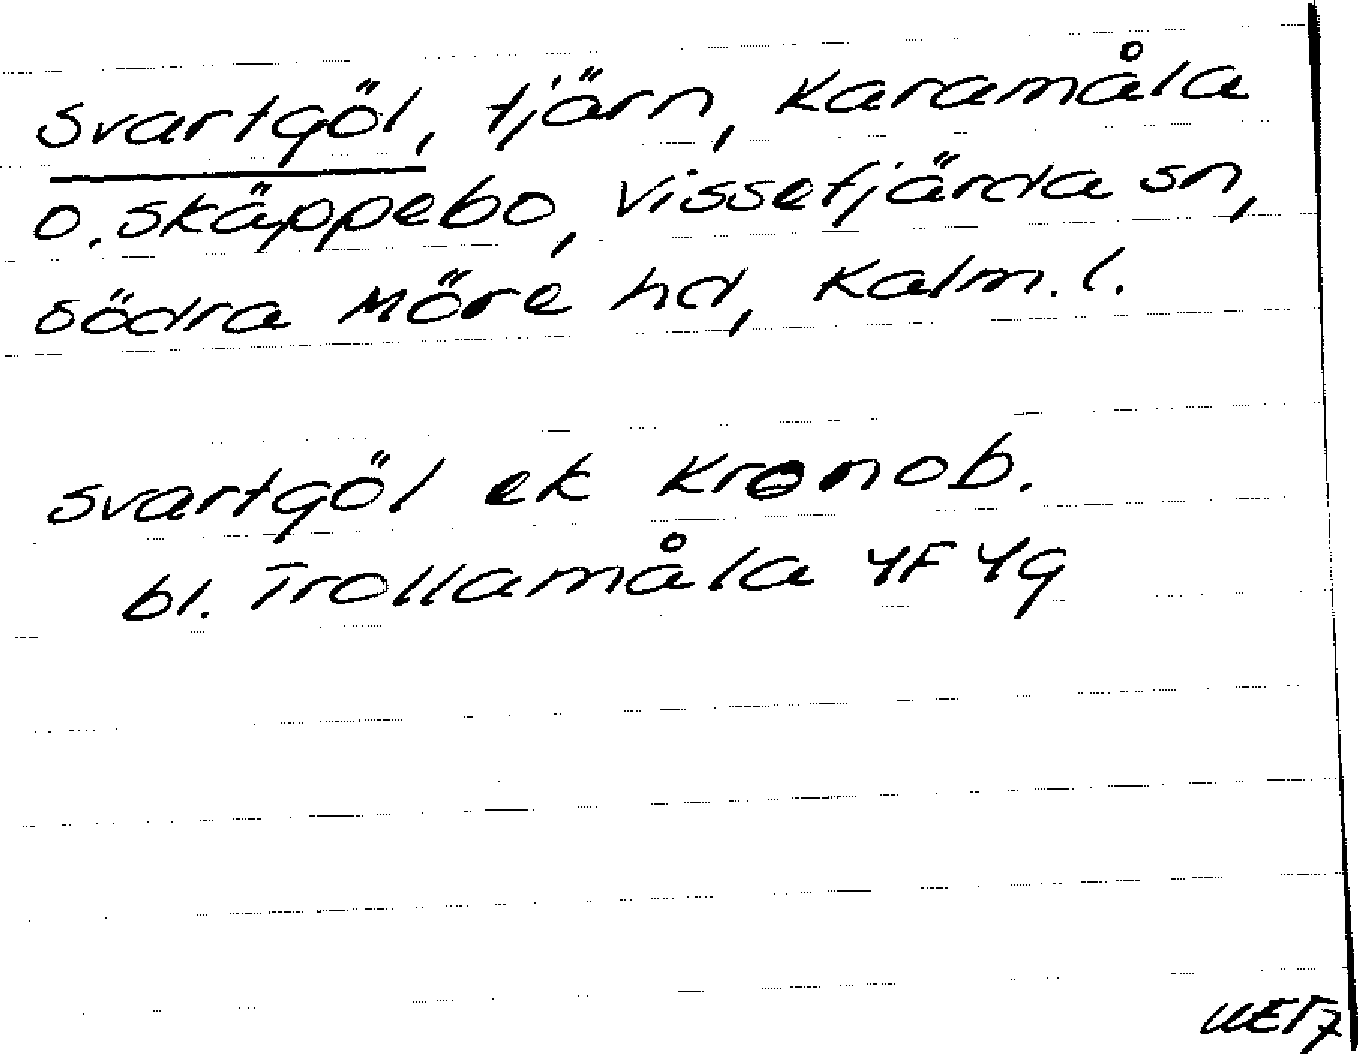 Svartgöl, tjärn, Karamåla
o. Skäppebo, Vissefjärda sn,
Södra Möre hd, Kalm. l.
Svartgöl ek Kronob.
bl. Trollamåla 4F 4g